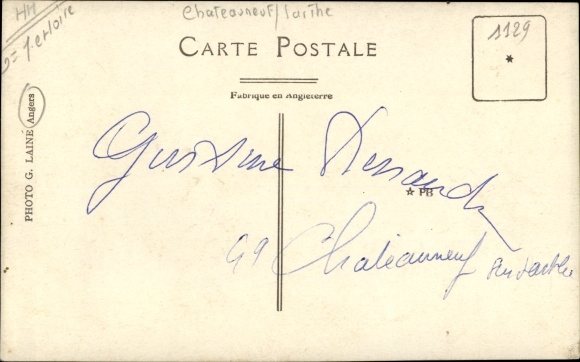 HH
Chateauneuf/Sarthe
CARTE POSTALE
1129
Fabrique en Angleterre
PHOTO G. LAINÉ Angers
Gustave
PB
49 Chateauneuf sur Sarthe